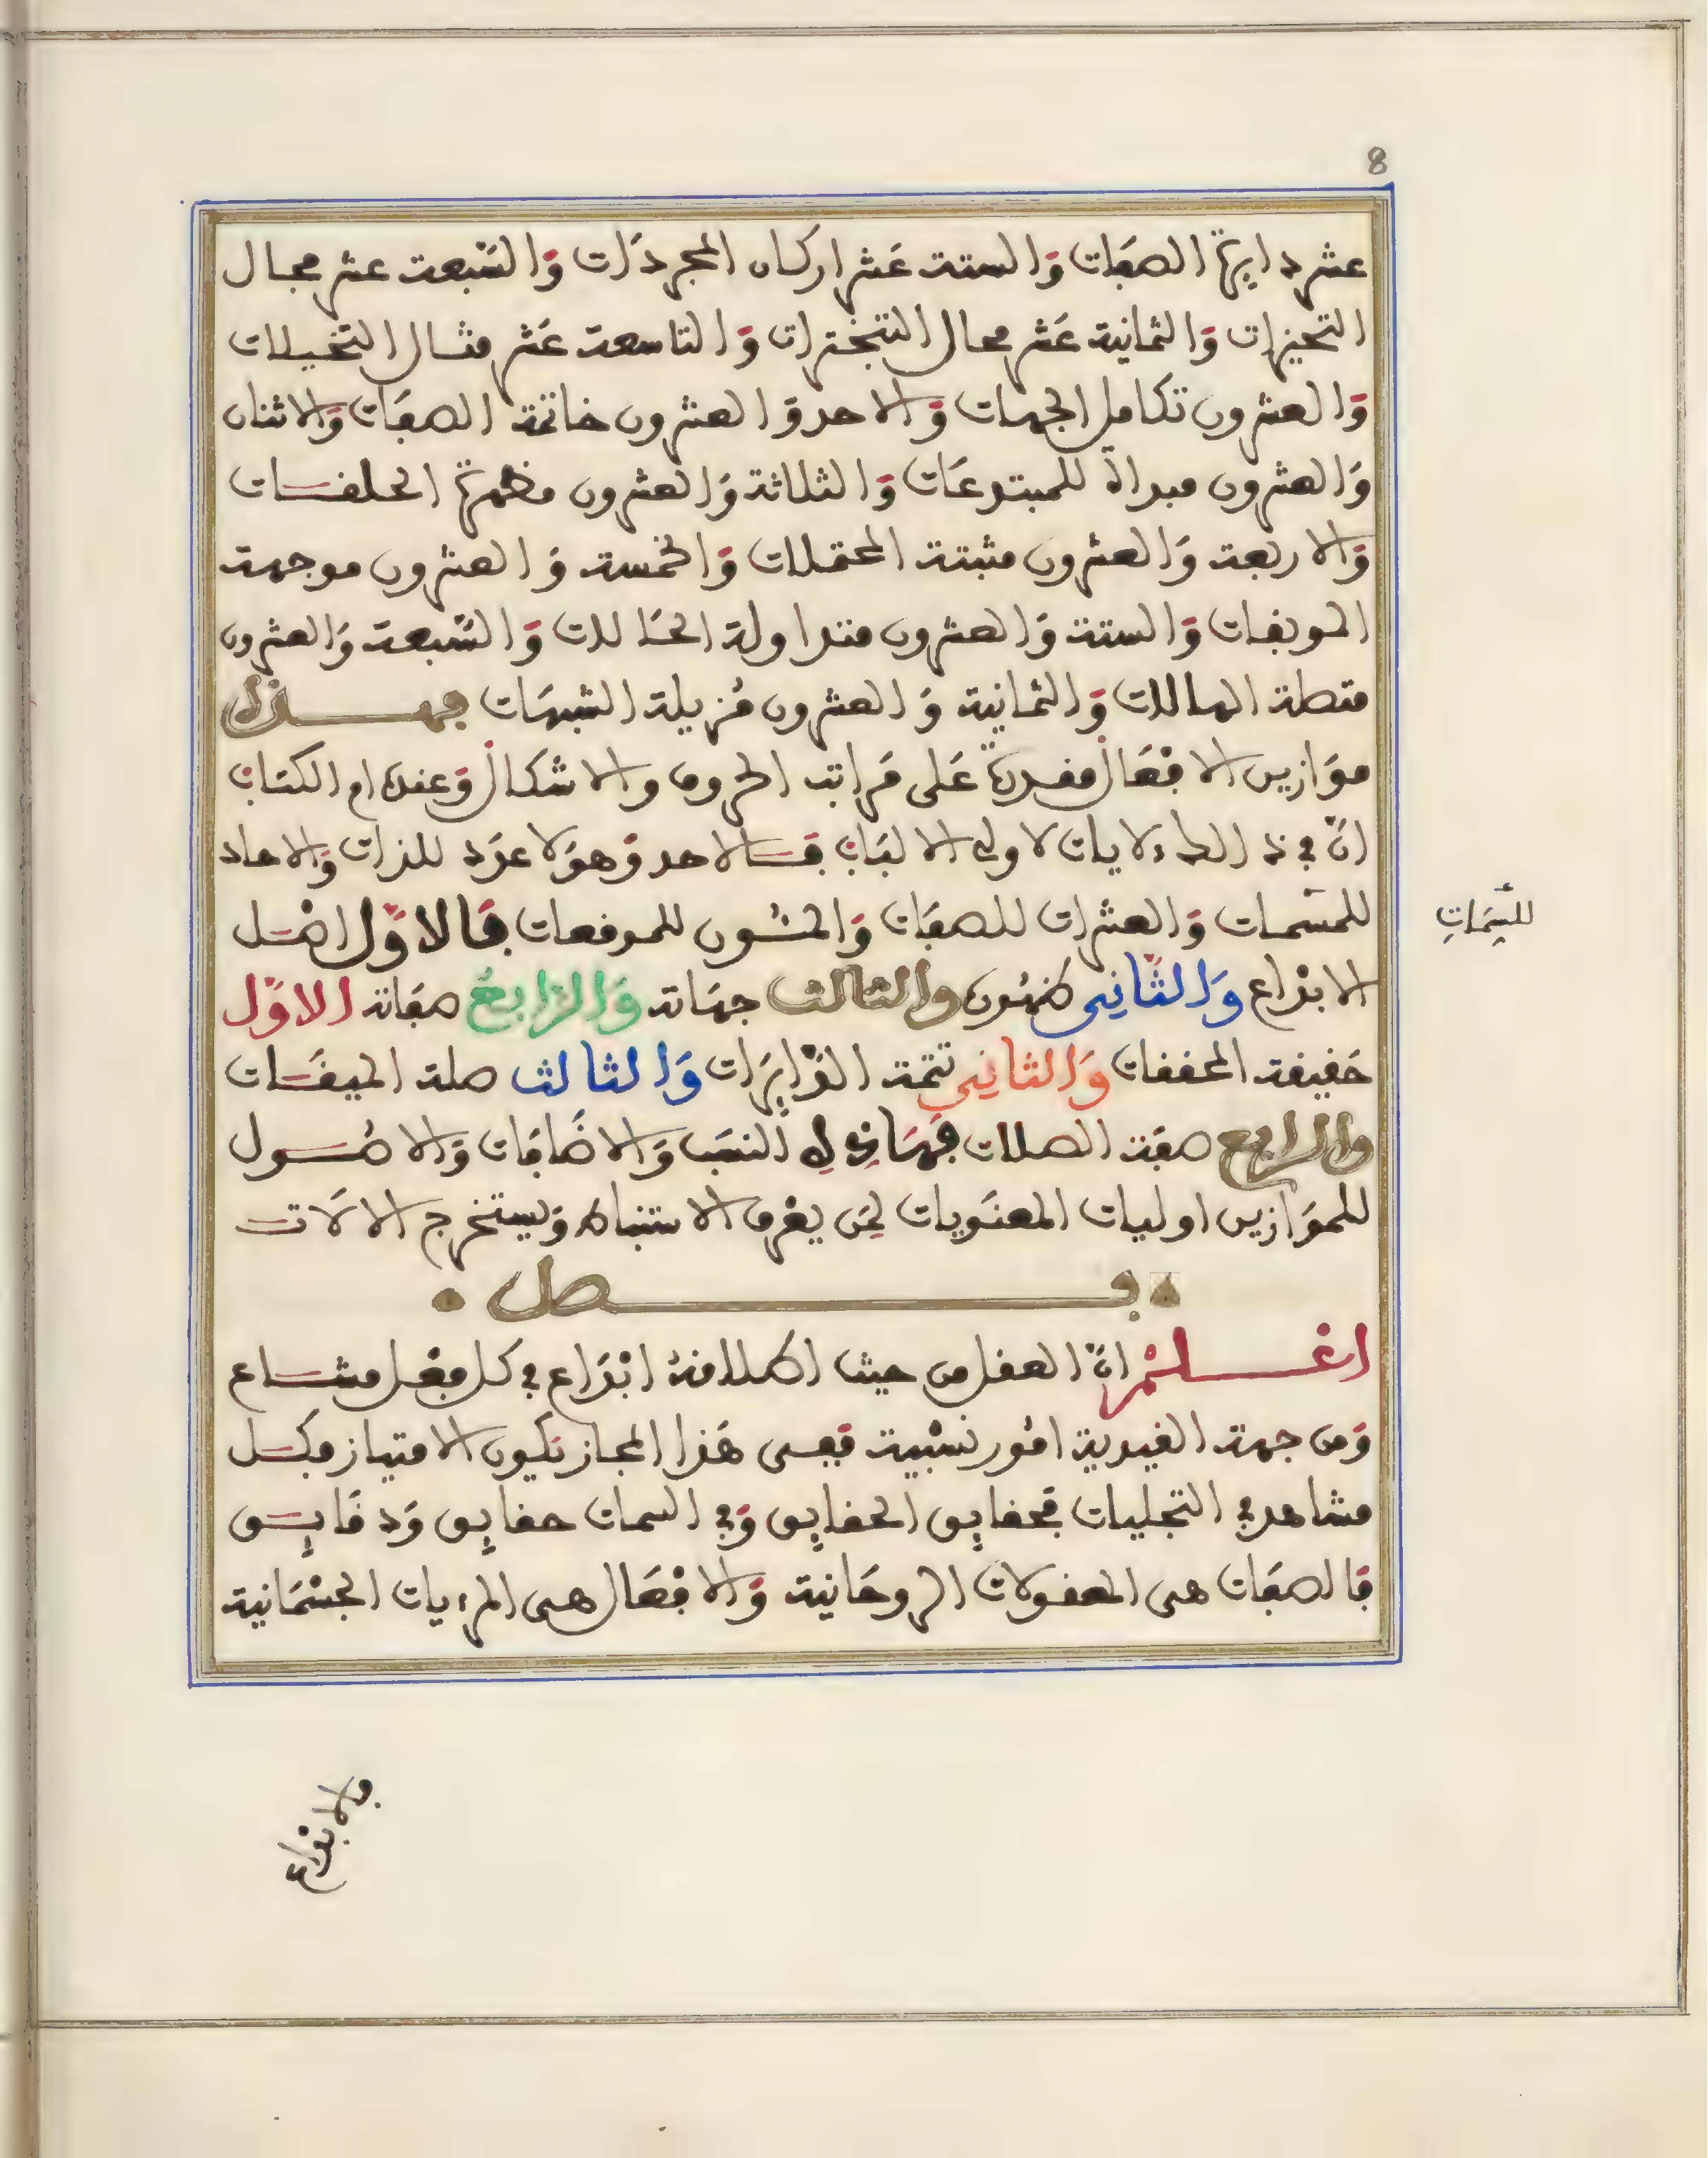 8
عشر دايرة الصفات وَالستة عَشر اركان المجردَات وَالسّبعة عشر مجال
التحيزات وَالثمانية عَشر محال التبخترات وَالتاسعة عَشر مثال التخيلات
وَالعشرون تكامل الجهات وَالاحد وَالعشرون خاتمة الصفَات وَالاثنان
وَالعشرون مبداة للمبتدعَات وَالثلاثة وَالعشرون مظهرة
وَالاربعة وَالعشرون مثبتة وَالخمسة وَالعشرون موجهة
وَالستة وَالعشرون متداولة وَالسّبعة وَالعشرون
وَالثمانية وَالعشرون مُزيلة الشبهَات فهذه
موَازين الافْعَال مفدرة عَلى مَراتب الحروف والاشكال وَعنده ام الكتاب
انّ في ذالك ءلايات لاولي الالبَاب فَالاحد وَهوَ لا عدَد للذات وَالاحاد
للمسّمات وَالعشرات للصفَات وَالمئون فَالاوّل اصْل
الابْداع وَالثّاني وَالثالث جهَاته وَالرّابعُ صفَاته الاوّل
حَفيفة وَالثاني تتمة الدّايرَات وَالثالث صلة
وَالرابع صفَة الصلات فهَاذه النسَب وَالاضَافَات وَالاصُول
للموَازين اوليات المعنَويات لمَن يعْرف الاشتباه وَيستخرج الالَات
فصل
اعْلمْ انّ العفل من حيث اطلافهُ ابْدَاع في كل فعْل مشاع
وَمن جهة الفيدية امُور نسْبية فَفى هَذا المجاز تكون الامتياز فكل
مشاهد في التجليات فَحفايِق الحفايِق وَفي السمات حفايِق وَدفَايِق
فَالصفَات هى المعفولات الروحَانية وَالافْعَال هى المرءيات الجسْمَانية
للسِّمَاتِ
فالابْداع